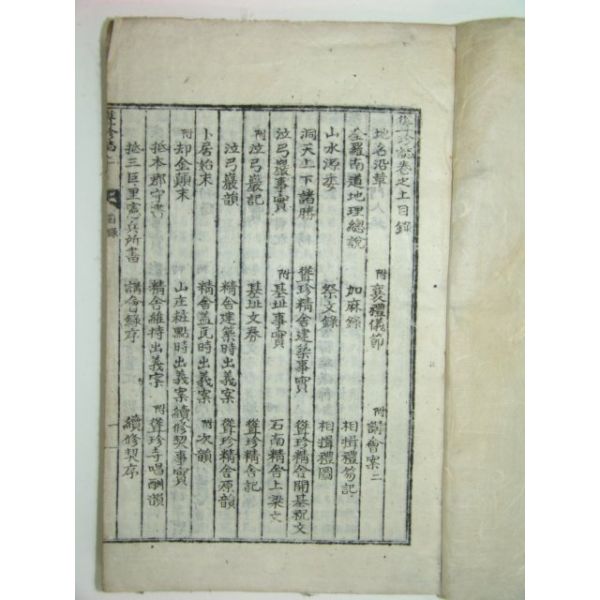 聳珍誌卷之上目錄
地名沿革 附襄禮儀節 附講會案二
全羅南道地理總說 加麻錄 相揖禮笏記
山水源委 祭文錄 相揖禮圖
洞天上下諸勝 聳珍精舍建築事實 聳珍精舍開基祝文
泣弓巖事實 附基址事實 石南精舍上梁文
附泣弓巖記 基址文券 聳珍精舍記
泣弓巖韻 精舍建築時出義案 聳珍精舍原韻
卜居始末 精舍蓋瓦時出義案 附次韻
附却金顛末 山庄粧點時出義案 續修契事實
抵本郡守書 精舍維持出義案 附聳珍寺唱酬韻
抵三巨里憲兵所書 講會錄序 續修契序
目錄
一